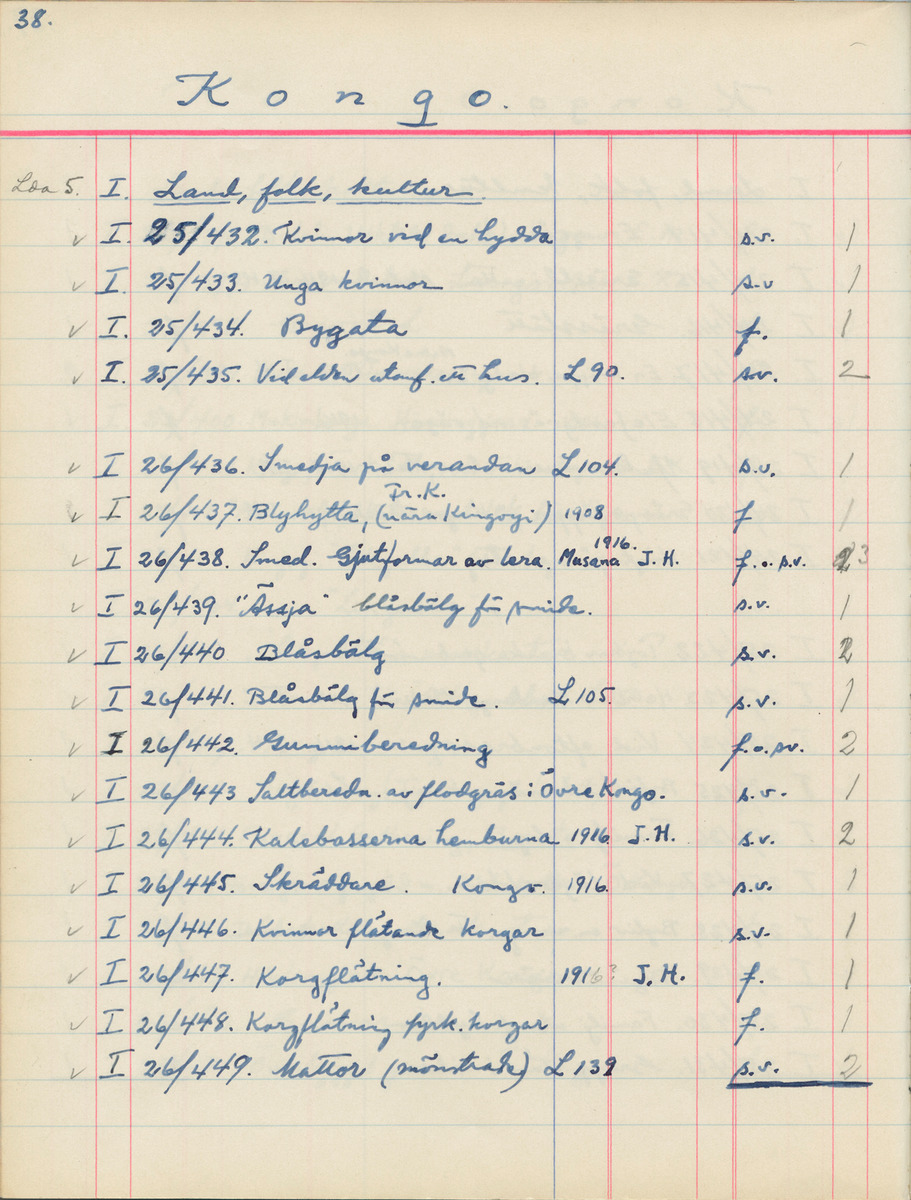 38.
Kongo.
Låda 5. I. Land, folk, kultur.
✓ I. 25/432. Kvinnor vid en hydda s.v. 1
✓ I. 25/433. Unga kvinnor s.v 1
✓ I. 25/434. Bygata f. 1
✓ I. 25/435. Vid elden utanf. ett hus. L 90. s.v. 2
✓ I 26/436. Smedja på verandan L 104. s.v. 1
Fr.K.
✓ I 26/437. Blyhytta, (nära Kingoyi) 1908 f 1
1916.
✓ I 26/438. Smed. Gjutformar av lera. Musana J.H. f.o.s.v. 3
✓ I 26/439. "Ässja" blåsbälg för smide. s.v. 1
✓ I 26/440 Blåsbälg s.v. 2
✓ I 26/441. Blåsbälg för smide. L 105. s.v. 1
✓ I 26/442. Gummiberedning f.o.sv. 2
✓ I 26/443 Saltberedn. av flodgräs i Övre Kongo. s.v. 1
✓ I 26/444. Kalebasserna hemburna 1916 J.H. s.v. 2
✓ I 26/445. Skräddare. Kongo. 1916. s.v. 1
✓ I 26/446. Kvinnor flätande korgar s.v. 1
✓ I 26/447. Korgflätning. 1916? J.H. f. 1
✓ I 26/448. Korgflätning fyrk. korgar f. 1
✓ I 26/449. Mattor (mönstrade) L 139 s.v. 2